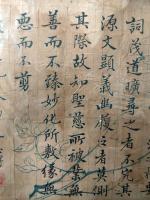 詞茂道曠尋之者不究其
源文顯義幽履之者莫測
其際故知聖慈所被業無
善而不臻妙化所敷緣無
惡而不剪